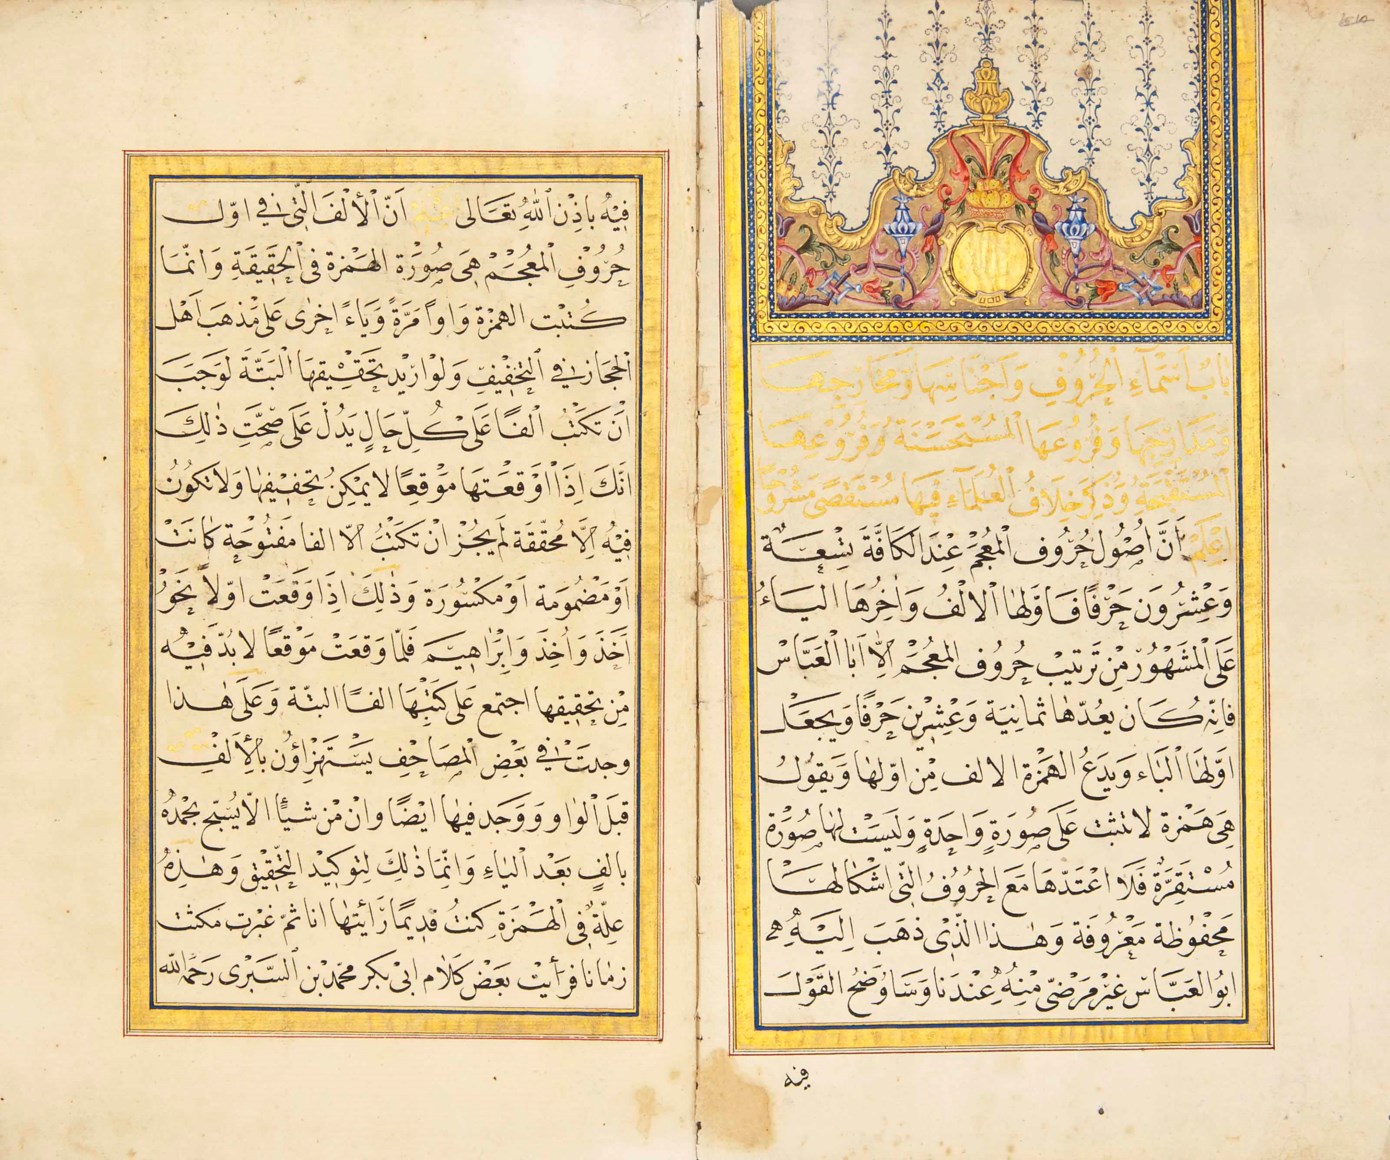 بَابُ اَسْمَاءِ الْحُرُوفِ وَاَجْنَاسِهَا وَمَخَارِجِهَا
وَمَدَارِجِهَا وَفُرُوعِهَا الْمُسْتَحْسَنَةِ وَفُرُوعِهَا
الْمُسْتَقْبَحَةِ وَذِكْرِ خِلَافِ الْعُلَمَاءِ فِيهَا مُسْتَقْصًى مَشْرُوحًا
اِعْلَمْ اَنَّ اُصُولَ حُرُوفِ الْمُعْجَمِ عِنْدَ الْكَافَّةِ تِسْعَةٌ
وَعِشْرُونَ حَرْفًا فَاَوَّلُهَا الْاَلِفُ وَاٰخِرُهَا الْيَاءُ
عَلَى الْمَشْهُورِ مِنْ تَرْتِيبِ حُرُوفِ الْمُعْجَمِ اِلَّا اَبَا الْعَبَّاسِ
فَاِنَّهُ كَانَ يَعُدُّهَا ثَمَانِيَةً وَعِشْرِينَ حَرْفًا وَيَجْعَلُ
اَوَّلَهَا الْبَاءَ وَيَدَعُ الهَمْزَةَ الالف مِنْ اَوَّلِهَا وَيَقُولُ
هِيَ هَمْزَةٌ لَا تَثْبُتُ عَلَى صُورَةٍ وَاحِدَةٍ وَلَيْسَتْ لَهَا صُورَةٌ
مُسْتَقِرَّةٌ فَلَا اَعْتَدُّهَا مَعَ الْحُرُوفِ الَّتِي اَشْكَالُهَا
مَحْفُوظَةٌ مَعْرُوفَةٌ وَهٰذَا الَّذِي ذَهَبَ اِلَيْهِ
اَبُو الْعَبَّاسِ غَيْرُ مَرْضِيٍّ مِنْهُ عِنْدَنَا وَسَاُوضِحُ الْقَوْلَ
فيه
فِيهِ بِاِذْنِ اللهِ تَعَالَى اَنَّ الْاَلِفَ الَّتِي فِي اَوَّلِ
حُرُوفِ الْمُعْجَمِ هِيَ صُورَةُ الْهَمْزَةِ فِي الْحَقِيقَةِ وَاِنَّمَا
كُتِبَتِ الهَمْزَةُ وَاوًا مَرَّةً وَيَاءً اُخْرَى عَلَى مَذْهَبِ اَهْلِ
الْحِجَازِ فِي التَّخْفِيفِ وَلَوْ اُرِيدَ تَحْقِيقُهَا الْبَتَّةَ لَوَجَبَ
اَنْ تُكْتَبَ اَلِفًا عَلَى كُلِّ حَالٍ يَدُلُّ عَلَى صِحَّةِ ذٰلِكَ
اَنَّكَ اِذَا اَوْقَعْتَهَا مَوْقِعًا لَا يُمْكِنُ تَخْفِيفُهَا وَلَا تَكُونُ
فِيهِ اِلَّا مُحَقَّقَةً لَمْ يَجُزْ اَنْ تُكْتَبَ اِلَّا الفا مَفْتُوحَةً كَانَتْ
اَوْ مَضْمُومَةً اَوْ مَكْسُورَةً وَذٰلِكَ اِذَا وَقَعَتْ اَوَّلًا نَحْوُ
اَخَذَ وَاُخِذَ وَاِبْرَاهِيمَ فَلَمَّا وَقَعَتْ مَوْقِعًا لَا بُدَّ فِيهِ
مِنْ تَحْقِيقِهَا اجْتُمِعَ عَلَى كَتْبِهَا اَلِفًا الْبَتَّةَ وَعَلَى هٰذَا
وجدت فِي بَعْضِ الْمَصَاحِفِ يَسْتَهْزِاؤُنَ بِالْاَلِفِ
قَبْلَ الْوَاوِ وَوَجَدَ فِيهَا اَيْضًا وَاِنْ مِنْ شَيْاٍ اِلَّا يُسَبِّحُ بِحَمْدِهِ
بِالِفٍ بَعْدَ الْيَاءِ وَاِنَّمَا ذٰلِكَ لِتَوْكِيدِ التَّحْقِيقِ وَهٰذِهِ
عِلَّةٌ فِي الْهَمْزَةِ كُنْتُ قَدِيمًا رَاَيْتُهَا انا ثُمَّ غَبَرْتُ مكثت
زَمَانًا فَرَاَيْتُ بَعْضَ كَلَامِ اَبِي بَكْرٍ مُحَمَّدِ بْنِ السَّرِيِّ رَحِمَهُ الله